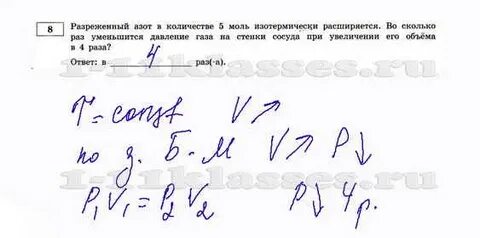 8
Разреженный азот в количестве 5 моль изотермически расширяется. Во сколько
раз уменьшится давление газа на стенки сосуда при увеличении его объёма
в 4 раза?
Ответ: в 4 раз(-а).
1-11klasses.ru
T = const V ↗
по з. Б-М V ↗ P ↓
1-11klasses.ru
P₁V₁ = P₂V₂ P ↓ 4 р.